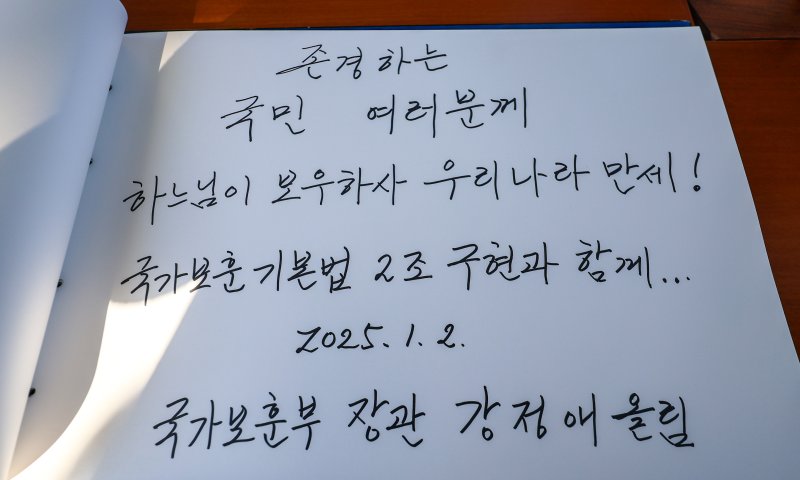 존경하는
국민 여러분께
하느님이 보우하사 우리나라 만세!
국가보훈기본법 2조 구현과 함께...
2025. 1. 2.
국가보훈부 장관 강정애 올림